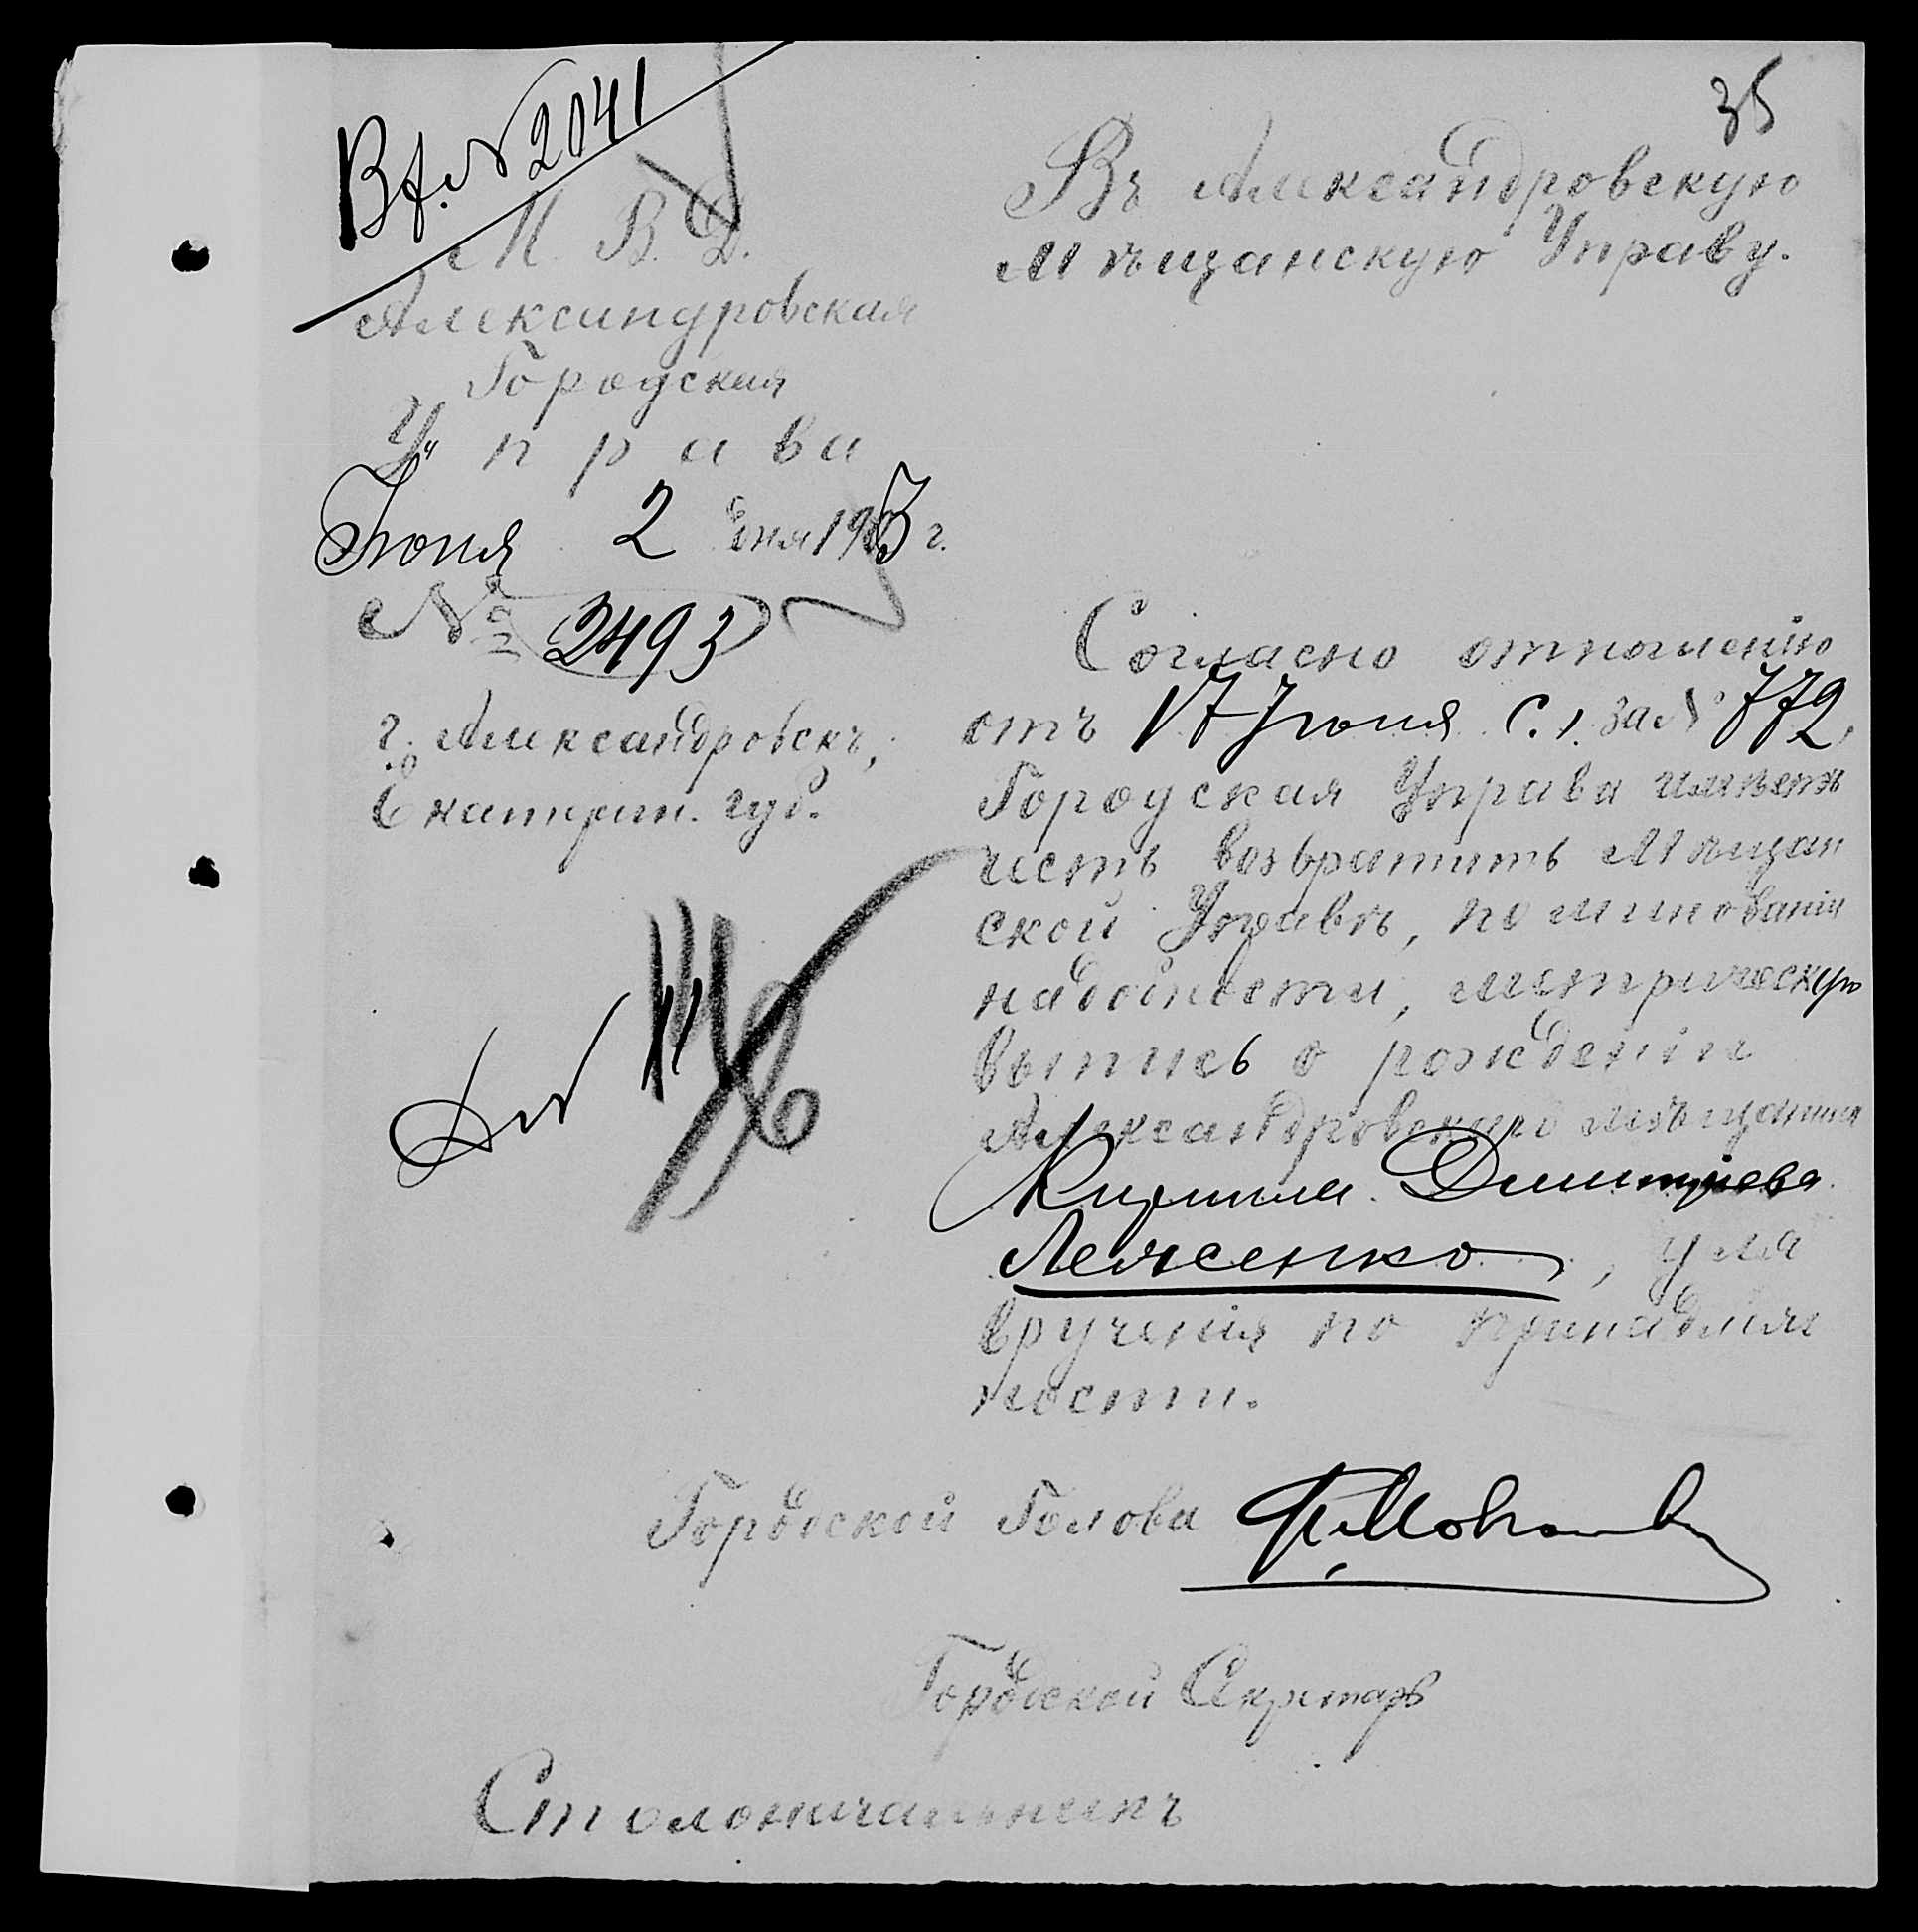 35
Вх. № 2041
М. В. Д.
Александровская
Городская
Управа
Іюня 2 дня 1903 г.
№ 2493
г. Александровскъ,
Екатерин. губ.
Въ Александровскую
Мѣщанскую Управу.
Согласно отношенію
отъ 17 Іюня с. г. за № 772,
Городская Управа имѣетъ
честь возвратить Мѣщан
ской Управѣ, по минованіи
надобности, метрическую
выпись о рожденіи
Александровскаго мѣщанина
Кирилла Дмитріева
Лемсенко, для
врученія по принадлеж
ности.
Городской Голова
Городской Секретарь
Столоначальникъ